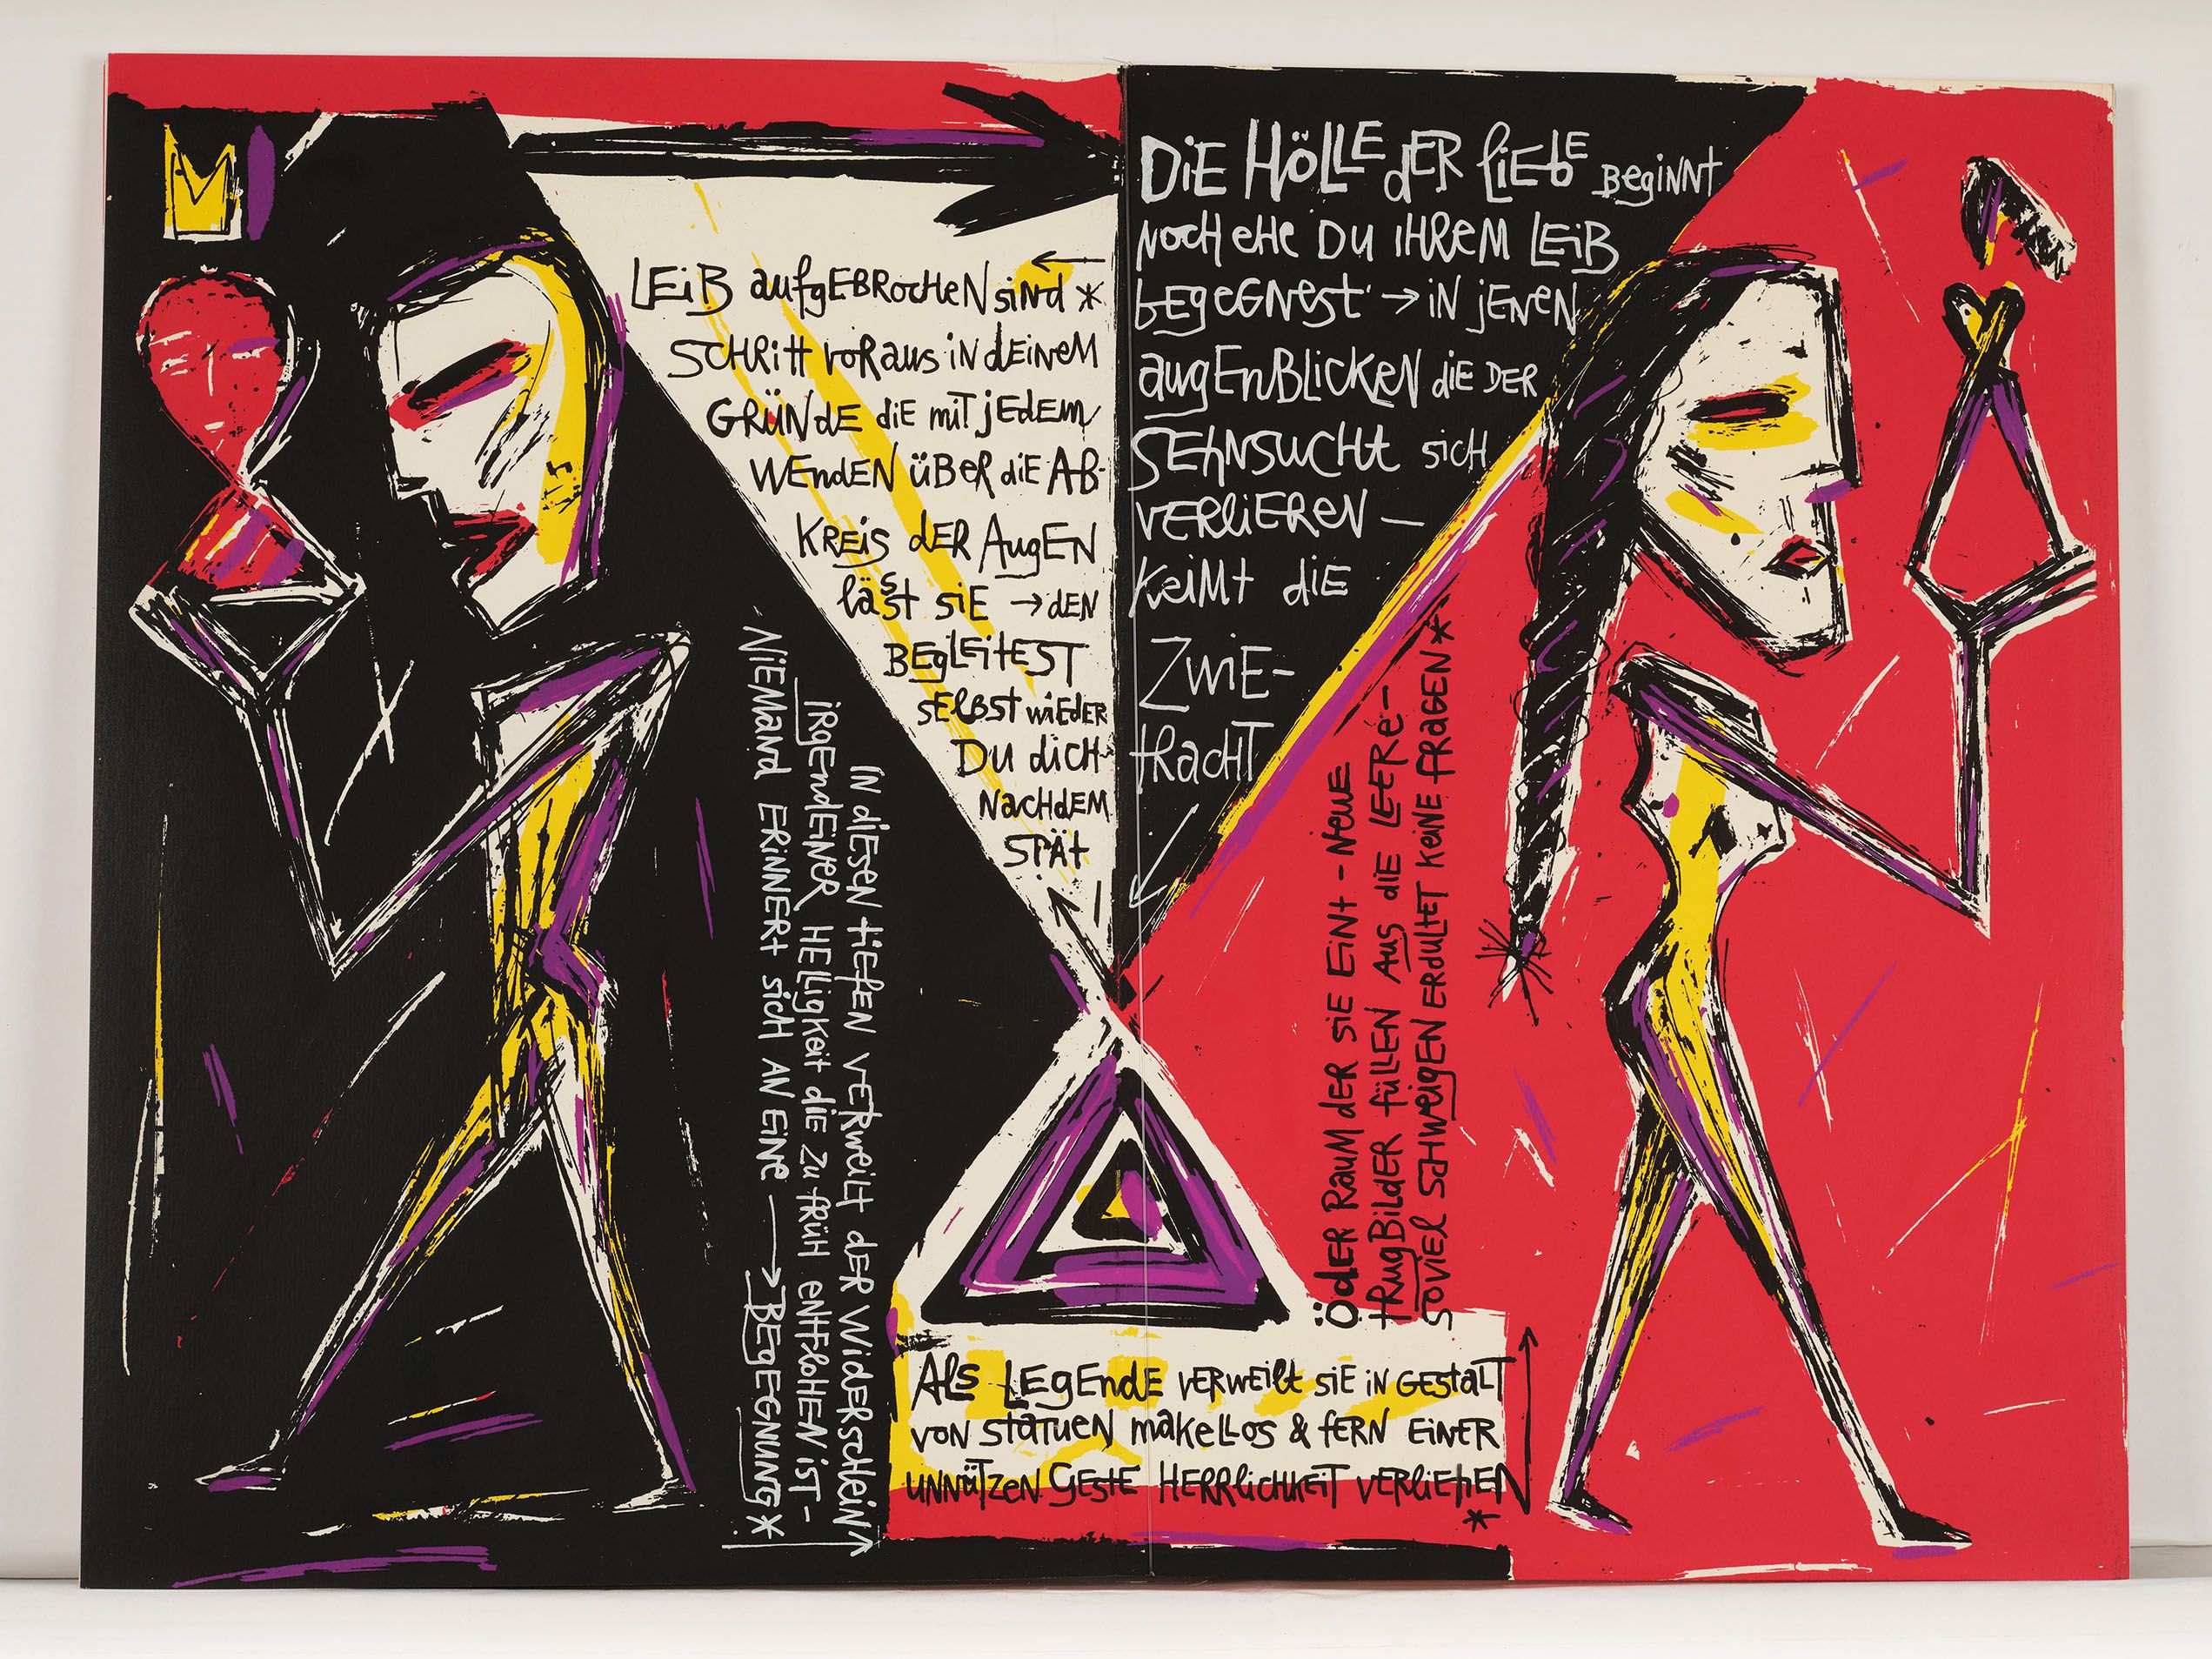 DIE HÖLLE DER LIEBE BEGINNT
NOCH EHE DU IHREM LEIB
BEGEGNEST → IN JENEN
AUGENBLICKEN DIE DER
SEHNSUCHT SICH
VERLIEREN –
KEIMT DIE
ZWIE-
TRACHT
LEIB AUFGEBROCHEN SIND *
SCHRITT VORAUS IN DEINEM
GRÜNDE DIE MIT JEDEM
WENDEN ÜBER DIE AB-
KREIS DER AUGEN
LÄSST SIE → DEN
BEGLEITEST
SELBST WIEDER
DU DICH
NACHDEM
SPÄT
IN DIESEN TIEFEN VERWEILT DER WIDERSCHEIN
IRGENDEINER HELLIGKEIT DIE ZU FRÜH ENTFLOHEN IST –
NIEMAND ERINNERT SICH AN EINE → BEGEGNUNG *
ÖDER RAUM DER SIE EINT – NEUE
TRUGBILDER FÜLLEN AUS DIE LEERE –
SOVIEL SCHWEIGEN ERDULTET KEINE FRAGEN *
ALS LEGENDE VERWEILT SIE IN GESTALT
VON STATUEN MAKELLOS & FERN EINER
UNNÜTZEN GESTE HERRLICHKEIT VERLIEHEN
*